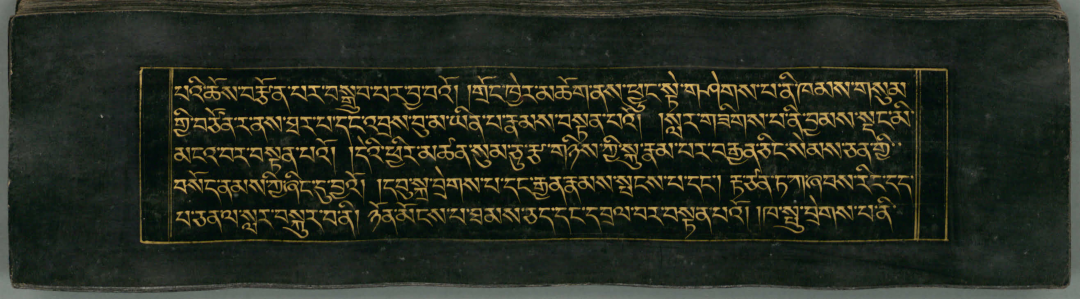 པའི་ཆོས་བརྩོན་པར་བསྒྲུབ་པར་བྱ་བའོ། །གྲོང་ཁྱེར་མཆོག་ནས་ཕྱུང་སྟེ་གཤེགས་པ་ནི་ཁམས་གསུམ་
ཀྱི་བཙོན་ར་ནས་ཐར་པ་དང་འབྲས་བུ་མ་ཡིན་པ་རྣམས་བསྟན་པའོ། །སླར་གཟིགས་པ་ནི་བྱམས་སྤང་མི་
མངའ་བར་བསྟན་པའོ། །དེའི་ཕྱིར་མཚན་སུམ་ཅུ་རྩ་གཉིས་ཀྱི་སྐུ་རྣམ་པར་བརྒྱན་ཅིང་སེམས་ཅན་ཀྱི་
བསོད་ནམས་ཀྱི་ཞིང་དུ་བྱའོ། །དབུ་སྐྲ་བྲེགས་པ་དང་རྒྱན་རྣམས་སྤངས་པ་དང་། ཞབས་རིང་དང་
པ་ཅན་ལ་སླར་བསྐུར་བནི། ཉོན་མོངས་པ་ཐམས་ཅད་དང་དབྲལ་བར་བསྟན་པའོ། །ཁ་སྤུ་བྲེགས་པ་ནི་